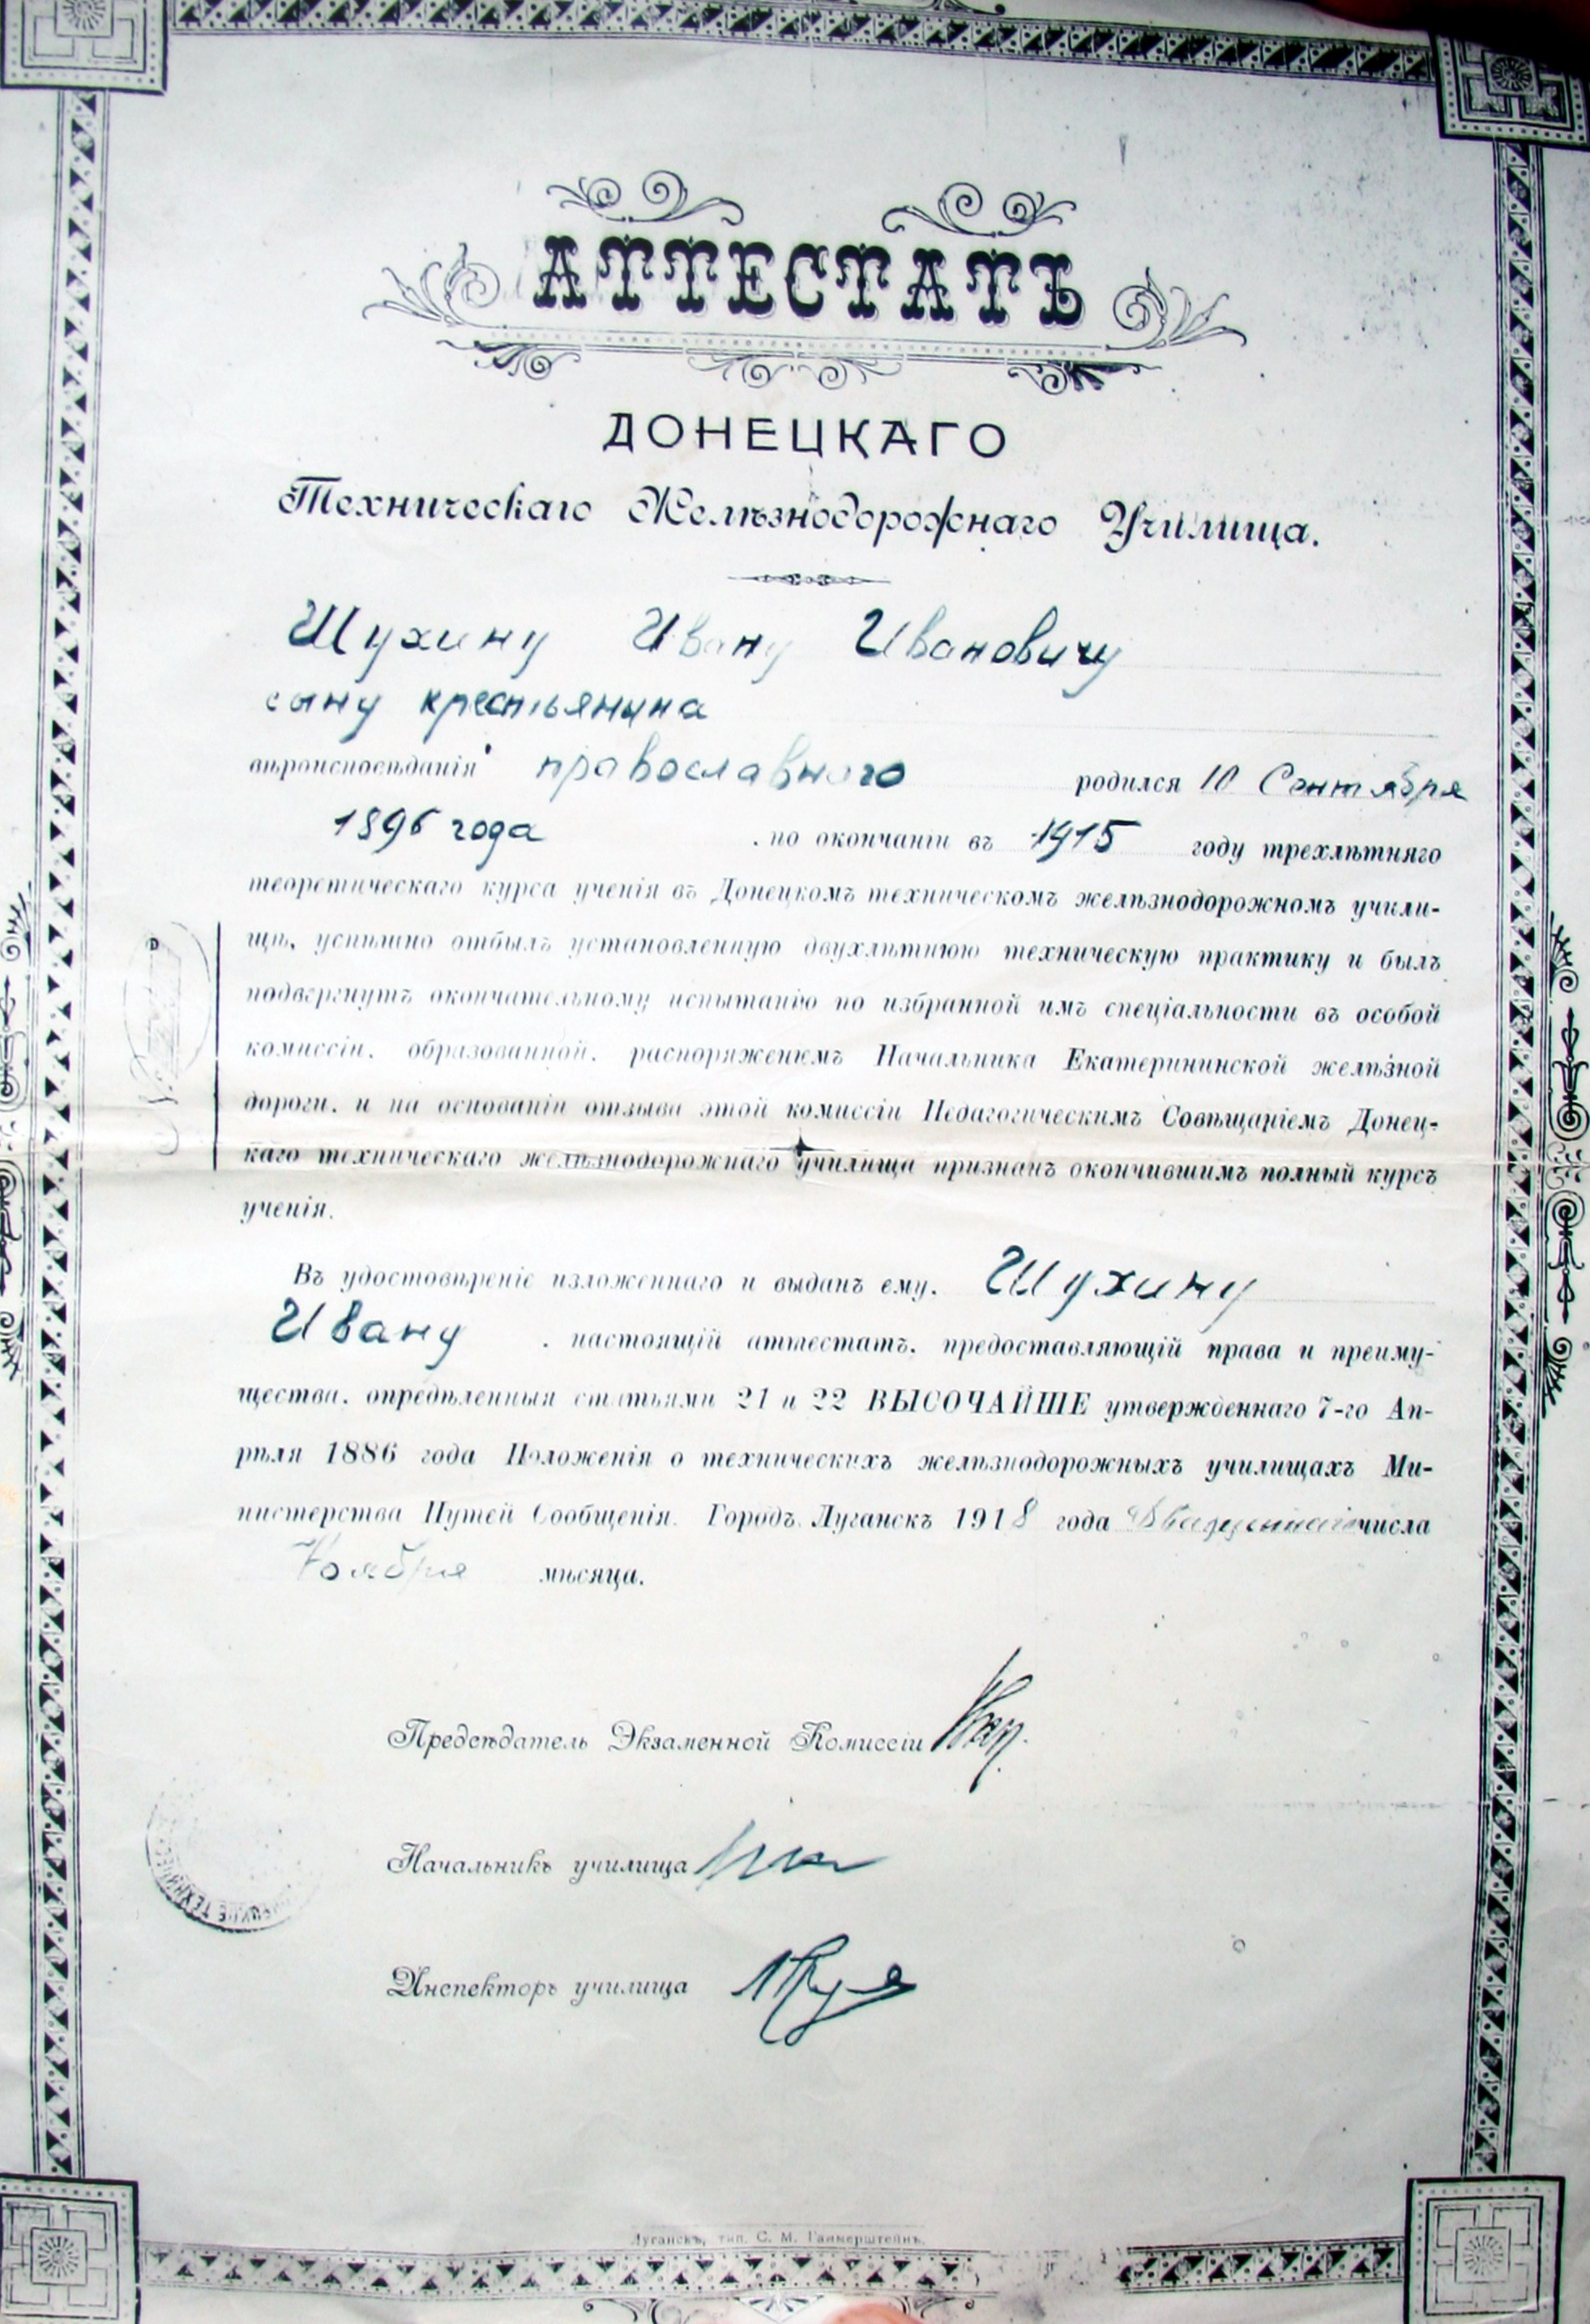 АТТЕСТАТЪ
ДОНЕЦКАГО
Техническаго Желѣзнодорожнаго Училища.
Шухину Ивану Ивановичу
сыну крестьянина
вѣроисповѣданія православного родился 10 Сентября
1896 года , по окончаніи въ 1915 году трехлѣтняго
теоретическаго курса ученія въ Донецкомъ техническомъ желѣзнодорожномъ учили-
щѣ, успѣшно отбылъ установленную двухлѣтнюю техническую практику и былъ
подвергнутъ окончательному испытанію по избранной имъ спеціальности въ особой
комиссіи, образованной, распоряженіемъ Начальника Екатерининской желѣзной
дороги, и на основаніи отзыва этой комиссіи Педагогическимъ Совѣщаніемъ Донец-
каго техническаго желѣзнодорожнаго училища признанъ окончившимъ полный курсъ
ученія.
Въ удостовѣреніе изложеннаго и выданъ ему, Шухину
Ивану , настоящій аттестатъ, предоставляющій права и преиму-
щества, опредѣленныя статьями 21 и 22 ВЫСОЧАЙШЕ утвержденнаго 7-го Ап-
рѣля 1886 года Положенія о техническихъ желѣзнодорожныхъ училищахъ Ми-
нистерства Путей Сообщенія. Городъ Луганскъ 1918 года Двадцатаго числа
Ноября мѣсяца.
Предсѣдатель Экзаменной Комиссіи
Начальникъ училища
Инспекторъ училища
Луганскъ, тип. С. М. Гаммерштейнъ.